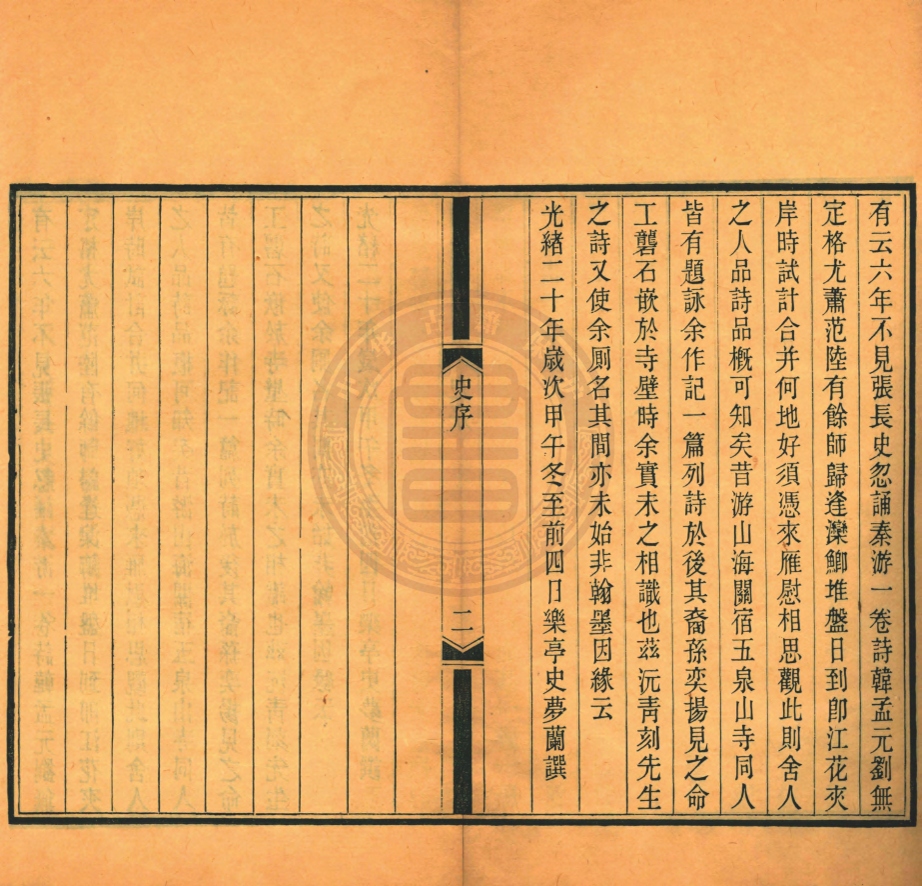 有云六年不見張長史忽誦秦游一卷詩韓孟元劉無
定格尤蕭范陸有餘師歸逢灤鯽堆盤日到卽江花夾
岸時試計合并何地好須憑來雁慰相思觀此則舍人
之人品詩品槪可知矣昔游山海關宿五泉山寺同人
皆有題詠余作記一篇列詩於後其裔孫奕揚見之命
工礱石嵌於寺壁時余實未之相識也茲沅靑刻先生
之詩又使余厠名其間亦未始非翰墨因緣云
光緒二十年歲次甲午冬至前四日樂亭史夢蘭譔
史序
二